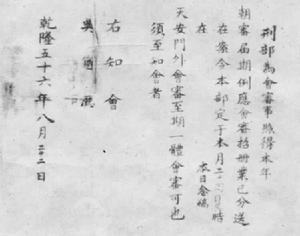 刑部為會審事照得本年
朝審届期例應會審招冊業已分送
在案今本部定于本月二十二日時
在
天安門外會審至期一體會審可也
須至知會者
右知會
吳
乾隆五十六年八月二十日